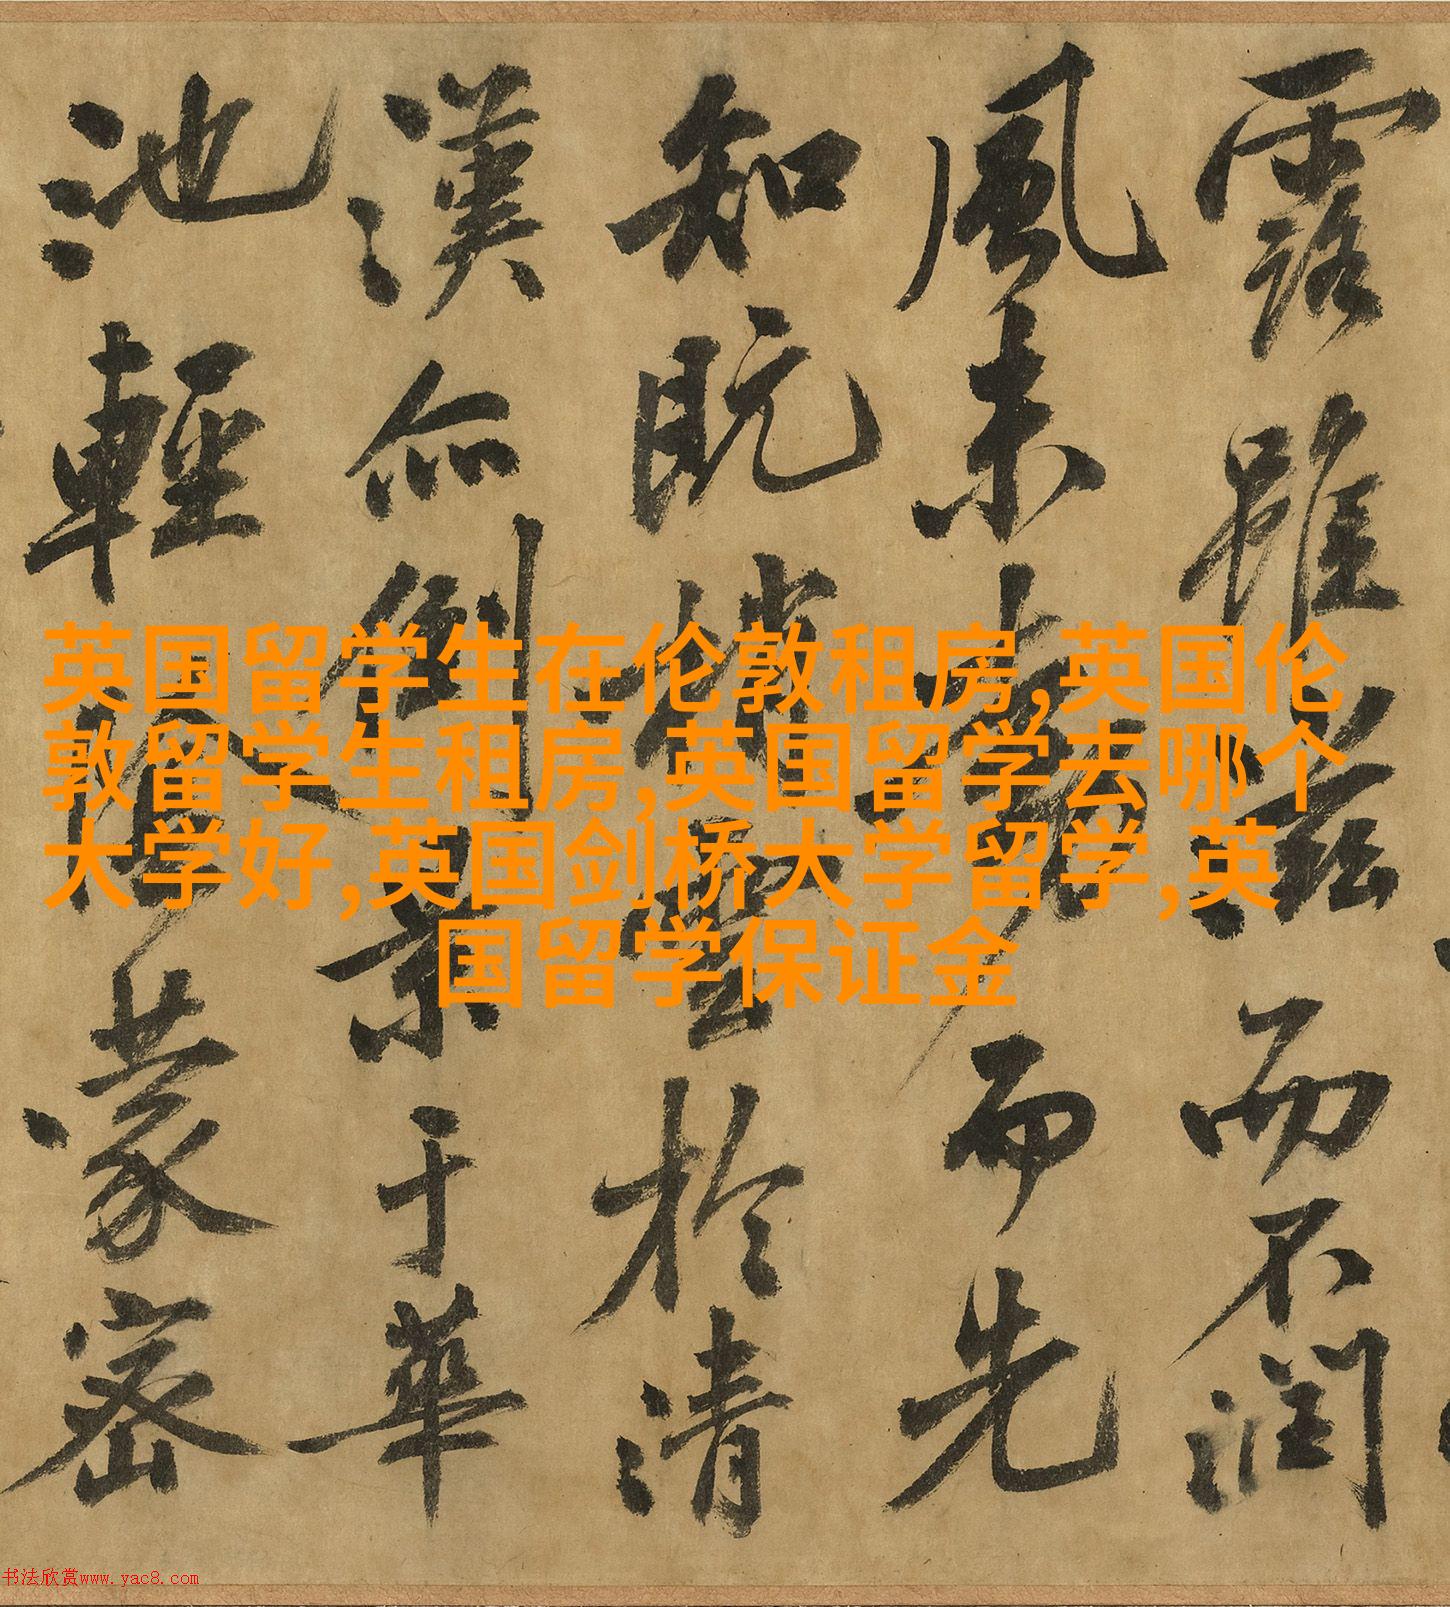 露雖滋而不潤
風未而先
知既梢雲於清
漢亦倒景于華
池輕蒙密
英国留学生在伦敦租房,英国伦
敦留学生租房,英国留学去哪个
大学好,英国剑桥大学留学,英
国留学保证金
书法欣赏www.yac8.com